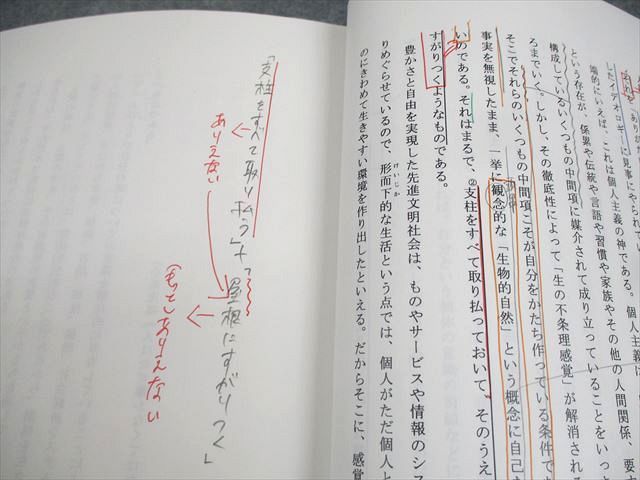 したイデオロギーに見事にやられて
端的にいえば、これは個人主義の神である。個人主義は
という存在が、係累や伝統や言語や習慣や家族やその他の人間関係、要す
構成しているいくつもの中間項に媒介されて成り立っていることをいっ
ろまでいく。しかし、その徹底性によって「生の不条理感覚」が解消され
そこでそれらのいくつもの中間項こそが自分をかたち作っている条件で
事実を無視したまま、一挙に観念的な「生物的自然」という概念に自己
いのである。それはまるで、②支柱をすべて取り払っておいて、そのうえ
すがりつくようなものである。
豊かさと自由を実現した先進文明社会は、ものやサービスや情報のシス
りめぐらせているので、形而下的な生活という点では、個人がただ個人と
けいじか
のにきわめて生きやすい環境を作り出したといえる。だからそこに、感覚
「支柱をすべて取り払う」+「屋根にすがりつく」
ありえない
もっとありえない